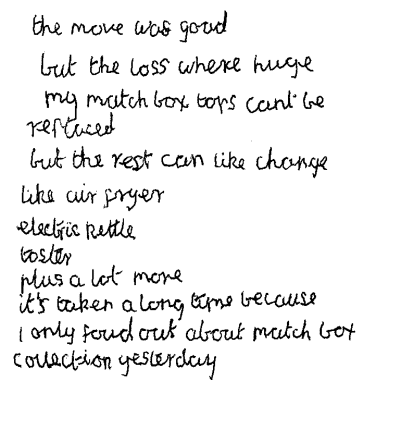 the move was good
but the loss where huge
my match box toys cant be
replaced
but the rest can like change
like air fryer
electric kettle
toster
plus a lot more
it's taken a long time because
I only foud out about match box
collection yesterday